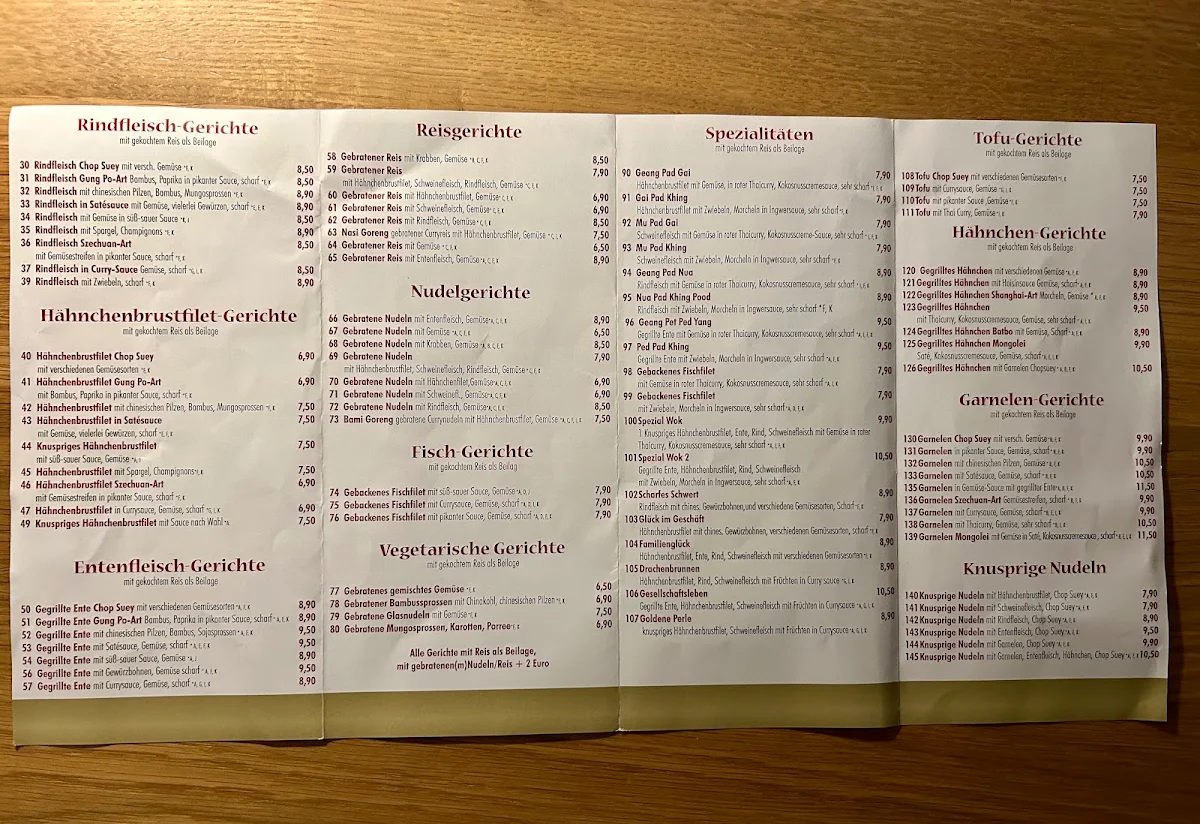 Rindfleisch-Gerichte
mit gekochtem Reis als Beilage
30 Rindfleisch Chop Suey mit versch. Gemüse 8,50
31 Rindfleisch Gung Po-Art Bambus, Paprika in pikanter Sauce, scharf 8,50
32 Rindfleisch mit chinesischen Pilzen, Bambus, Mungosprossen 8,90
33 Rindfleisch in Satésauce mit Gemüse, vielerlei Gewürzen, scharf 8,90
34 Rindfleisch mit Gemüse in süß-sauer Sauce 8,50
35 Rindfleisch mit Spargel, Champignons 8,90
36 Rindfleisch Szechuan-Art 8,50
mit Gemüsestreifen in pikanter Sauce, scharf
37 Rindfleisch in Curry-Sauce Gemüse, scharf 8,50
39 Rindfleisch mit Zwiebeln, scharf 8,90
Hähnchenbrustfilet-Gerichte
mit gekochtem Reis als Beilage
40 Hähnchenbrustfilet Chop Suey 6,90
mit verschiedenen Gemüsesorten
41 Hähnchenbrustfilet Gung Po-Art 6,90
mit Bambus, Paprika in pikanter Sauce, scharf
42 Hähnchenbrustfilet mit chinesischen Pilzen, Bambus, Mungosprossen 7,50
43 Hähnchenbrustfilet in Satésauce 7,50
mit Gemüse, vielerlei Gewürzen, scharf
44 Knuspriges Hähnchenbrustfilet 7,50
mit süß-sauer Sauce
45 Hähnchenbrustfilet mit Spargel, Champignons 7,50
46 Hähnchenbrustfilet Szechuan-Art 6,90
mit Gemüsestreifen in pikanter Sauce, scharf
47 Hähnchenbrustfilet in Currysauce, Gemüse, scharf 6,90
49 Knuspriges Hähnchenbrustfilet mit Sauce nach Wahl 7,50
Entenfleisch-Gerichte
mit gekochtem Reis als Beilage
50 Gegrillte Ente Chop Suey mit verschiedenen Gemüsesorten 8,90
51 Gegrillte Ente Gung Po-Art Bambus, Paprika in pikanter Sauce, scharf 8,90
52 Gegrillte Ente mit chinesischen Pilzen, Bambus, Sojasprossen 9,50
53 Gegrillte Ente mit Satésauce, Gemüse, scharf 9,50
54 Gegrillte Ente mit süß-sauer Sauce, Gemüse 8,90
56 Gegrillte Ente mit Gewürzbohnen, Gemüse scharf 9,50
57 Gegrillte Ente mit Currysauce, Gemüse, scharf 8,90
Reisgerichte
58 Gebratener Reis mit Krabben, Gemüse 8,50
59 Gebratener Reis 7,90
mit Hähnchenbrustfilet, Schweinefleisch, Rindfleisch, Gemüse
60 Gebratener Reis mit Hähnchenbrustfilet, Gemüse 6,90
61 Gebratener Reis mit Schweinefleisch, Gemüse 6,90
62 Gebratener Reis mit Rindfleisch, Gemüse 8,50
63 Nasi Goreng gebratener Curryreis mit Hähnchenbrustfilet, Gemüse 7,50
64 Gebratener Reis mit Gemüse 6,50
65 Gebratener Reis mit Entenfleisch, Gemüse 8,90
Nudelgerichte
66 Gebratene Nudeln mit Entenfleisch, Gemüse 8,90
67 Gebratene Nudeln mit Gemüse 6,50
68 Gebratene Nudeln mit Krabben, Gemüse 8,50
69 Gebratene Nudeln 7,90
mit Hähnchenbrustfilet, Schweinefleisch, Rindfleisch, Gemüse
70 Gebratene Nudeln mit Hähnchenfilet,Gemüse 6,90
71 Gebratene Nudeln mit Schweinefl., Gemüse 6,90
72 Gebratene Nudeln mit Rindfleisch, Gemüse 8,50
73 Bami Goreng gebratene Currynudeln mit Hähnchenbrustfilet, Gemüse 7,50
Fisch-Gerichte
mit gekochtem Reis als Beilag
74 Gebackenes Fischfilet mit süß-sauer Sauce, Gemüse 7,90
75 Gebackenes Fischfilet mit Currysauce, Gemüse, scharf 7,90
76 Gebackenes Fischfilet mit pikanter Sauce, Gemüse, scharf 7,90
Vegetarische Gerichte
mit gekochtem Reis als Beilage
77 Gebratenes gemischtes Gemüse 6,50
78 Gebratener Bambussprossen mit Chinakohl, chinesischen Pilzen 6,90
79 Gebratene Glasnudeln mit Gemüse 7,50
80 Gebratene Mungosprossen, Karotten, Porree 6,90
Alle Gerichte mit Reis als Beilage,
mit gebratenen(m)Nudeln/Reis + 2 Euro
Spezialitäten
mit gekochtem Reis als Beilage
90 Geang Pad Gai 7,90
Hähnchenbrustfilet mit Gemüse, in roter Thaicurry, Kokosnusscremesauce, sehr scharf
91 Gai Pad Khing 7,90
Hähnchenbrustfilet mit Zwiebeln, Morcheln in Ingwersauce, sehr scharf
92 Mu Pad Gai 7,90
Schweinefleisch mit Gemüse in roter Thaicurry, Kokosnusscreme-Sauce, sehr scharf
93 Mu Pad Khing 7,90
Schweinefleisch mit Zwiebeln, Morcheln in Ingwersauce, sehr scharf
94 Geang Pad Nua 8,90
Rindfleisch mit Gemüse in roter Thaicurry, Kokosnusscremesauce, sehr scharf
95 Nua Pad Khing Pood 8,90
Rindfleisch mit Zwiebeln, Morcheln in Ingwersauce, sehr scharf *F, K
96 Geang Pet Ped Yang 9,50
Gegrillte Ente mit Gemüse in roter Thaicurry, Kokosnusscremesauce, sehr scharf
97 Ped Pad Khing 9,50
Gegrillte Ente mit Zwiebeln, Morcheln in Ingwersauce, sehr scharf
98 Gebackenes Fischfilet 7,90
mit Gemüse in roter Thaicurry, Kokosnusscremesauce, sehr scharf
99 Gebackenes Fischfilet 7,90
mit Zwiebeln, Morcheln in Ingwersauce, sehr scharf
100 Spezial Wok 9,90
1 Knuspriges Hähnchenbrustfilet, Ente, Rind, Schweinefleisch mit Gemüse in roter
Thaicurry, Kokosnusscremesauce, sehr scharf
101 Spezial Wok 2 10,50
Gegrillte Ente, Hähnchenbrustfilet, Rind, Schweinefleisch
mit Zwiebeln, Morcheln in Ingwersauce, sehr scharf
102 Scharfes Schwert 8,90
Rindfleisch mit chines. Gewürzbohnen,und verschiedene Gemüsesorten, Scharf
103 Glück im Geschäft 7,90
Hähnchenbrustfilet mit chines. Gewürzbohnen, verschiedenen Gemüsesorten, scharf
104 Familienglück 8,90
Hähnchenbrustfilet, Ente, Rind, Schweinefleisch mit verschiedenen Gemüsesorten
105 Drachenbrunnen 8,90
Hähnchenbrustfilet, Rind, Schweinefleisch mit Früchten in Curry sauce
106 Gesellschaftsleben 10,50
Gegrillte Ente, Hähnchenbrustfilet, Schweinefleisch mit Früchten in Currysauce
107 Goldene Perle 8,90
knuspriges Hähnchenbrustfilet, Schweinefleisch mit Früchten in Currysauce
Tofu-Gerichte
mit gekochtem Reis als Beilage
108 Tofu Chop Suey mit verschiedenen Gemüsesorten 7,50
109 Tofu mit Currysauce, Gemüse 7,50
110 Tofu mit pikanter Sauce ,Gemüse 7,50
111 Tofu mit Thai Curry, Gemüse 7,90
Hähnchen-Gerichte
mit gekochtem Reis als Beilage
120 Gegrilltes Hähnchen mit verschiedenen Gemüse 8,90
121 Gegrilltes Hähnchen mit Hoisinsauce Gemüse, scharf 8,90
122 Gegrilltes Hähnchen Shanghai-Art Morcheln, Gemüse 8,90
123 Gegrilltes Hähnchen 9,50
mit Thaicurry, Kokosnusscremesauce, Gemüse, scharf
124 Gegrilltes Hähnchen Batbo mit Gemüse, Scharf 8,90
125 Gegrilltes Hähnchen Mongolei 9,90
Saté, Kokosnusscremesauce, Gemüse, scharf
126 Gegrilltes Hähnchen mit Garnelen Chopsuey 10,50
Garnelen-Gerichte
mit gekochtem Reis als Beilage
130 Garnelen Chop Suey mit versch. Gemüse 9,90
131 Garnelen in pikanter Sauce, Gemüse, scharf 9,90
132 Garnelen mit chinesischen Pilzen, Gemüse 10,50
133 Garnelen mit Satésauce, Gemüse, scharf 10,50
135 Garnelen in Gemüse-Sauce mit gegrillter Ente 11,50
136 Garnelen Szechuan-Art Gemüsestreifen, scharf 9,90
137 Garnelen mit Currysauce, Gemüse, scharf 9,90
138 Garnelen mit Thaicurry, Gemüse, sehr scharf 10,50
139 Garnelen Mongolei mit Gemüse in Saté, Kokosnusscremesauce, scharf 11,50
Knusprige Nudeln
140 Knusprige Nudeln mit Hähnchenbrustfilet, Chop Suey 7,90
141 Knusprige Nudeln mit Schweinefleisch, Chop Suey 7,90
142 Knusprige Nudeln mit Rindfleisch, Chop Suey 8,90
143 Knusprige Nudeln mit Entenfleisch, Chop Suey 9,50
144 Knusprige Nudeln mit Garnelen, Chop Suey 9,90
145 Knusprige Nudeln mit Garnelen, Entenfleisch, Hähnchen, Chop Suey 10,50